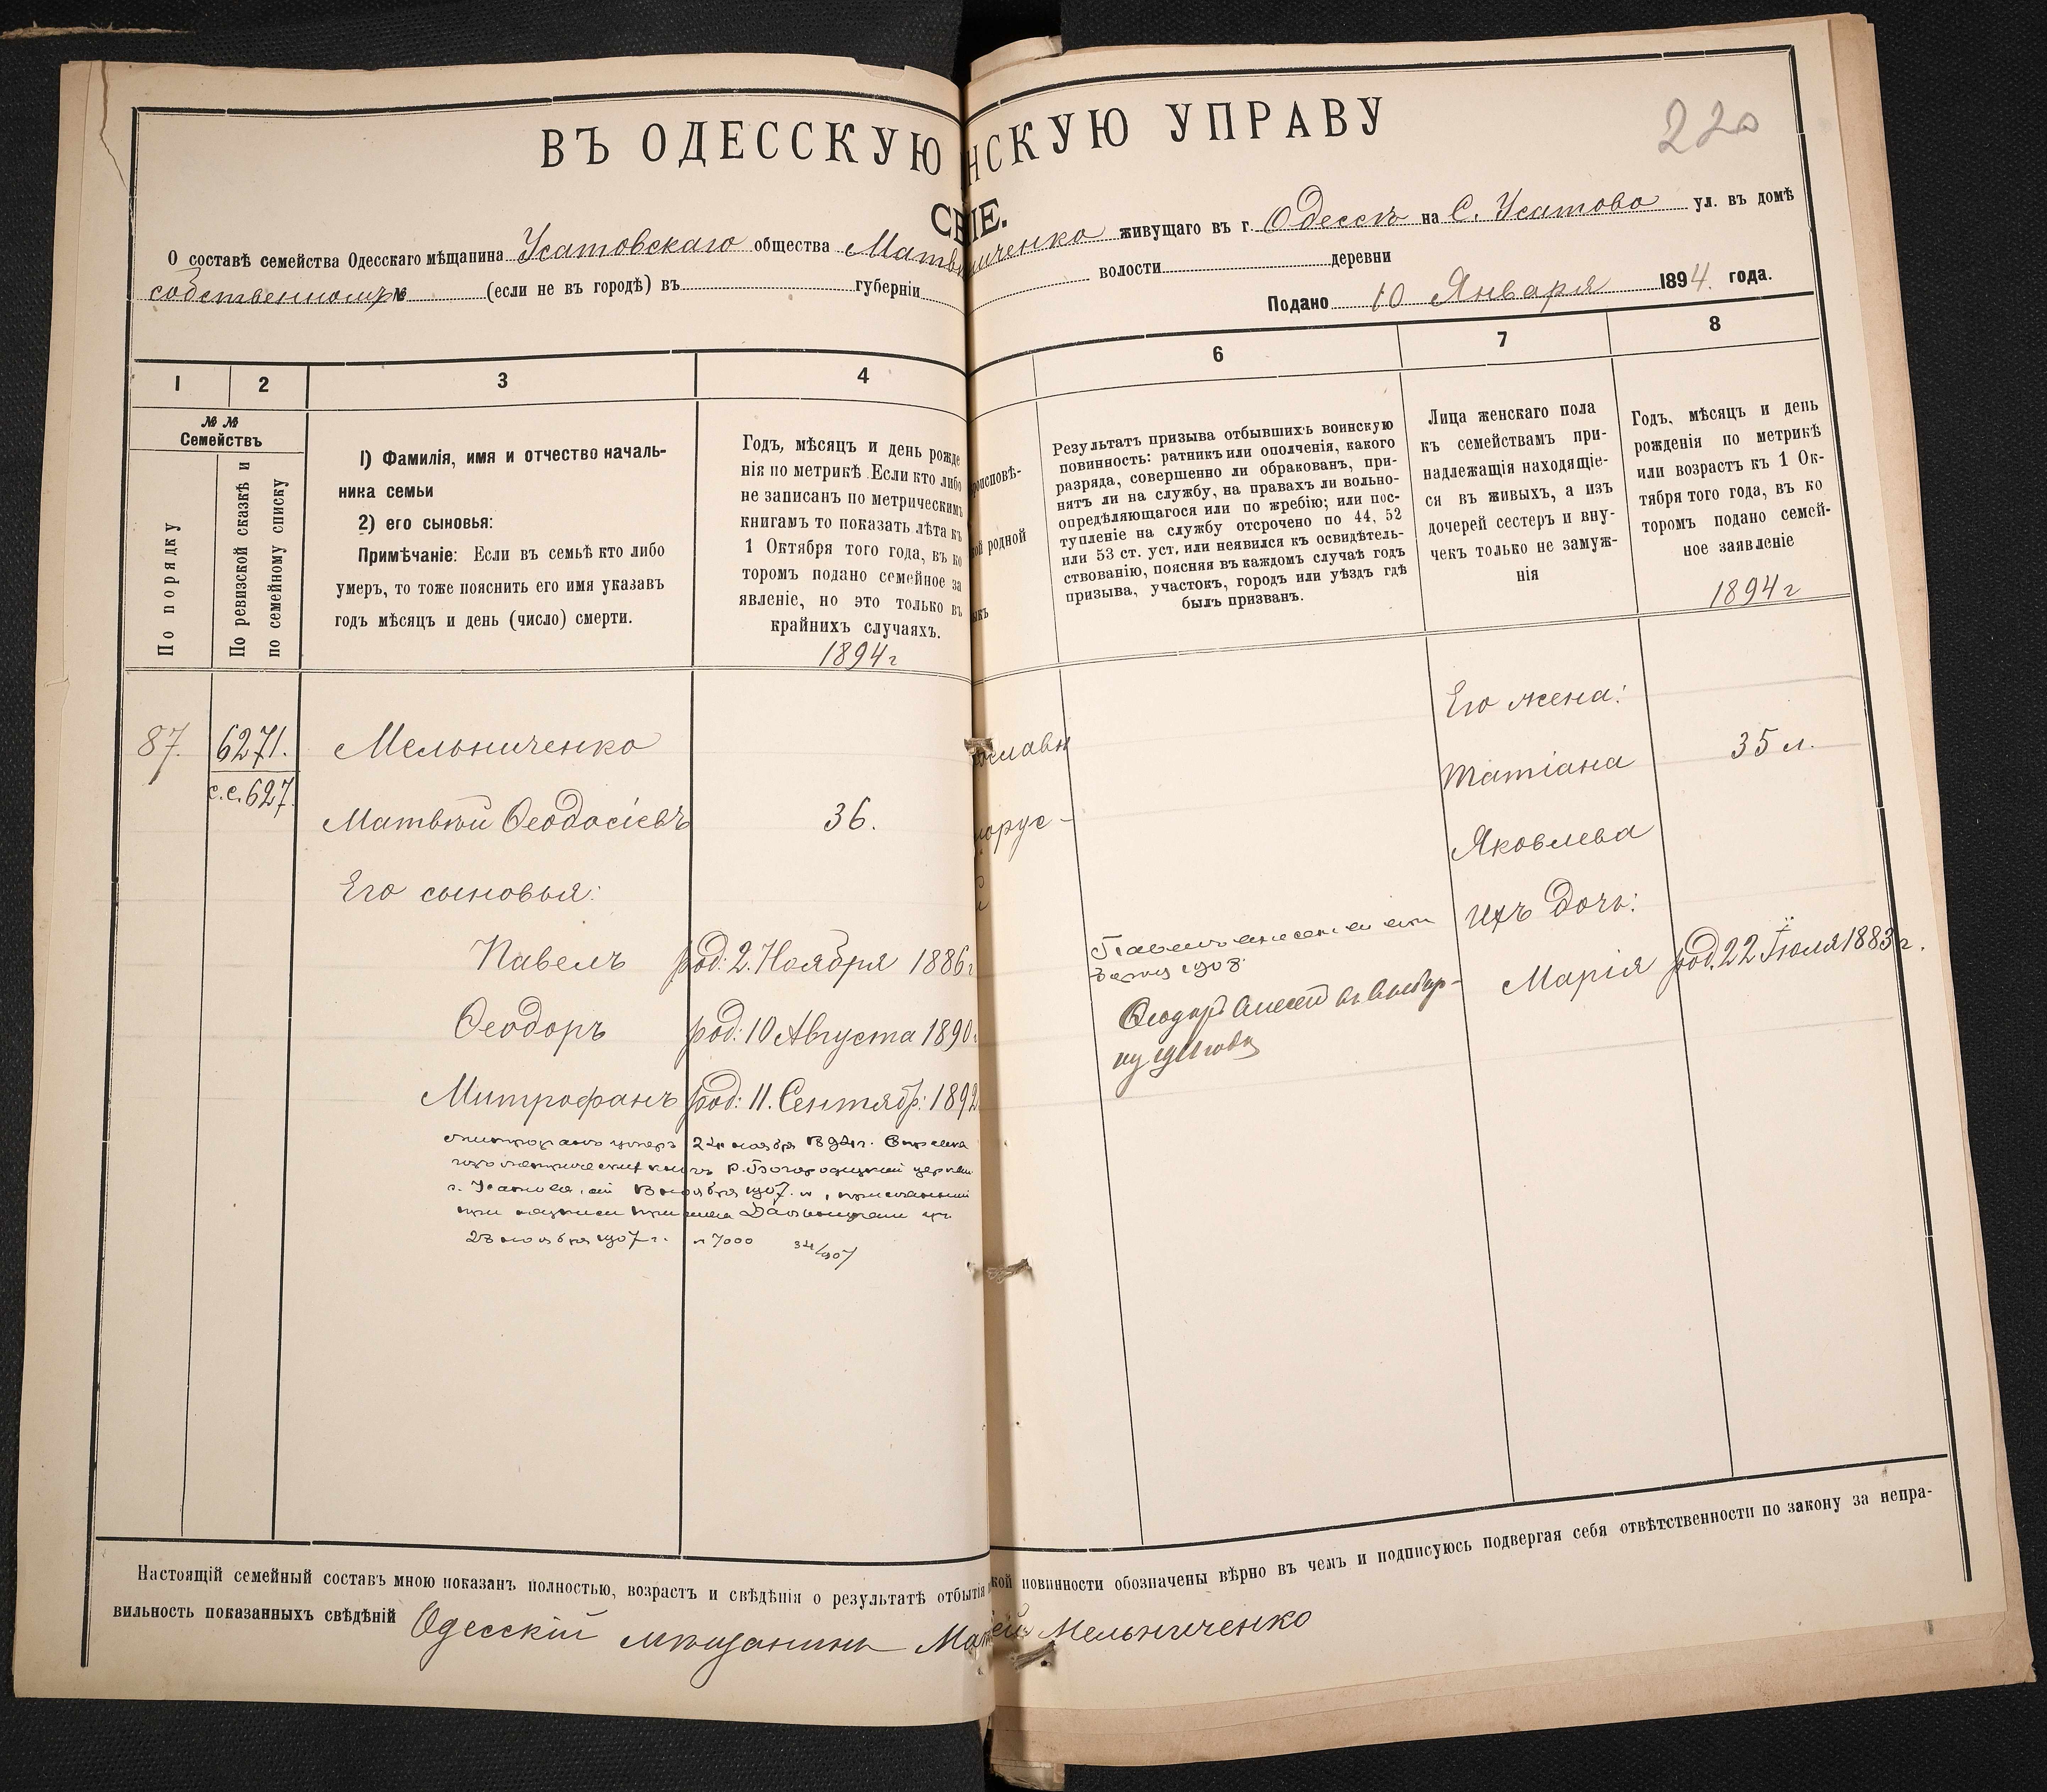 220
ВЪ ОДЕССКУЮ
НСКУЮ УПРАВУ
О составѣ семейства Одесскаго мѣщанина Усатовскаго общества Матв
ниченко живущаго въ г. Одессѣ на С. Усатово ул. въ домѣ
собственномъ № (если не въ городѣ) въ губерніи
волости деревни
Подано 10 Января 1894 года.
1 2 3 4
6 7 8
№ №
Семействъ
По порядку
По ревизской сказкѣ и
по семейному списку
1) Фамилія, имя и отчество началь-
ника семьи
2) его сыновья:
Примѣчаніе: Если въ семьѣ кто либо
умеръ, то тоже пояснить его имя указавъ
годъ мѣсяцъ и день (число) смерти.
Годъ, мѣсяцъ и день рожде
нія по метрикѣ. Если кто либо
не записанъ по метрическимъ
книгамъ то показать лѣта къ
1 Октября того года, въ ко
торомъ подано семейное за
явленіе, но это только въ
крайнихъ случаяхъ.
1894 г
роисповѣ-
ой родной
ыкъ
Результатъ призыва отбывшихъ воинскую
повинность: ратникъ или ополченія, какого
разряда, совершенно ли обракованъ, при-
нятъ ли на службу, на правахъ ли вольно-
опредѣляющагося или по жребію; или пос-
тупленіе на службу отсрочено по 44, 52
или 53 ст. уст. или неявился къ освидѣтель-
ствованію, поясняя въ каждомъ случаѣ годъ
призыва, участокъ, городъ или уѣздъ гдѣ
былъ призванъ.
Лица женскаго пола
къ семействамъ при-
надлежащія находящіе-
ся въ живыхъ, а изъ
дочерей сестеръ и вну-
чекъ только не замуж-
нія
Годъ, мѣсяцъ и день
рожденія по метрикѣ
или возрастъ къ 1 Ок-
тября того года, въ ко
торомъ подано семей-
ное заявленіе
1894 г
87. 6271. Мельниченко
с.с. 627.
Матвѣй Ѳеодосіевъ 36.
Его сыновья:
Павелъ род: 2. Ноября 1886 г
Ѳеодоръ род: 10 Августа 1890
Митрофанъ род: 11. Сентябр: 1892
Митрофанъ умеръ 24 ноября
церкви
ноября 1907
23 ноября 1907 г. № 7000
ославн
орус-
Павелъ внесенъ
1908
Ѳеодоръ внесенъ въ выбор-
ку 1911 года
Его жена:
Татіана 35 л.
Яковлева
Ихъ дочь:
Марія род. 22 Іюля 1883 г.
Настоящій семейный составъ мною показанъ полностью, возрастъ и свѣдѣнія о результатѣ отбытія
кой повинности обозначены вѣрно въ чемъ и подписуюсь подвергая себя отвѣтственности по закону за непра-
вильность показанныхъ свѣдѣній Одесскій мѣщанинъ Мат
ей Мельниченко